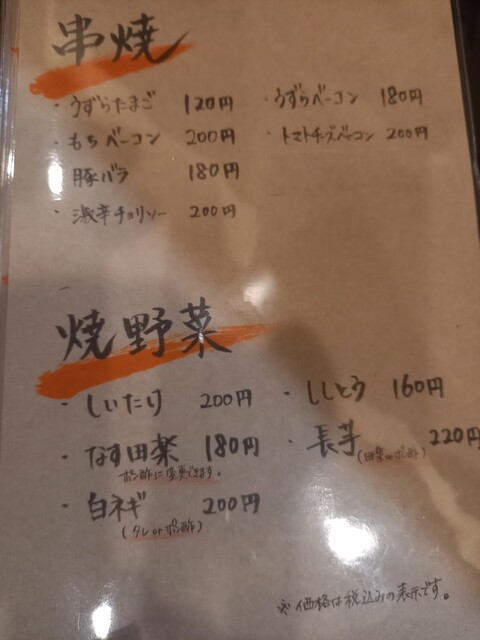 串焼
・うずらたまご 120円 ・うずらベーコン 180円
・もちベーコン 200円 ・トマトチーズベーコン 200円
・豚バラ 180円
・激辛チョリソー 200円
焼野菜
・しいたけ 200円 ・ししとう 160円
・なす田楽 180円 ・長芋 220円
ポン酢に変更できます。 (田楽orポン酢)
・白ネギ 200円
(タレorポン酢)
※価格は税込みの表示です。